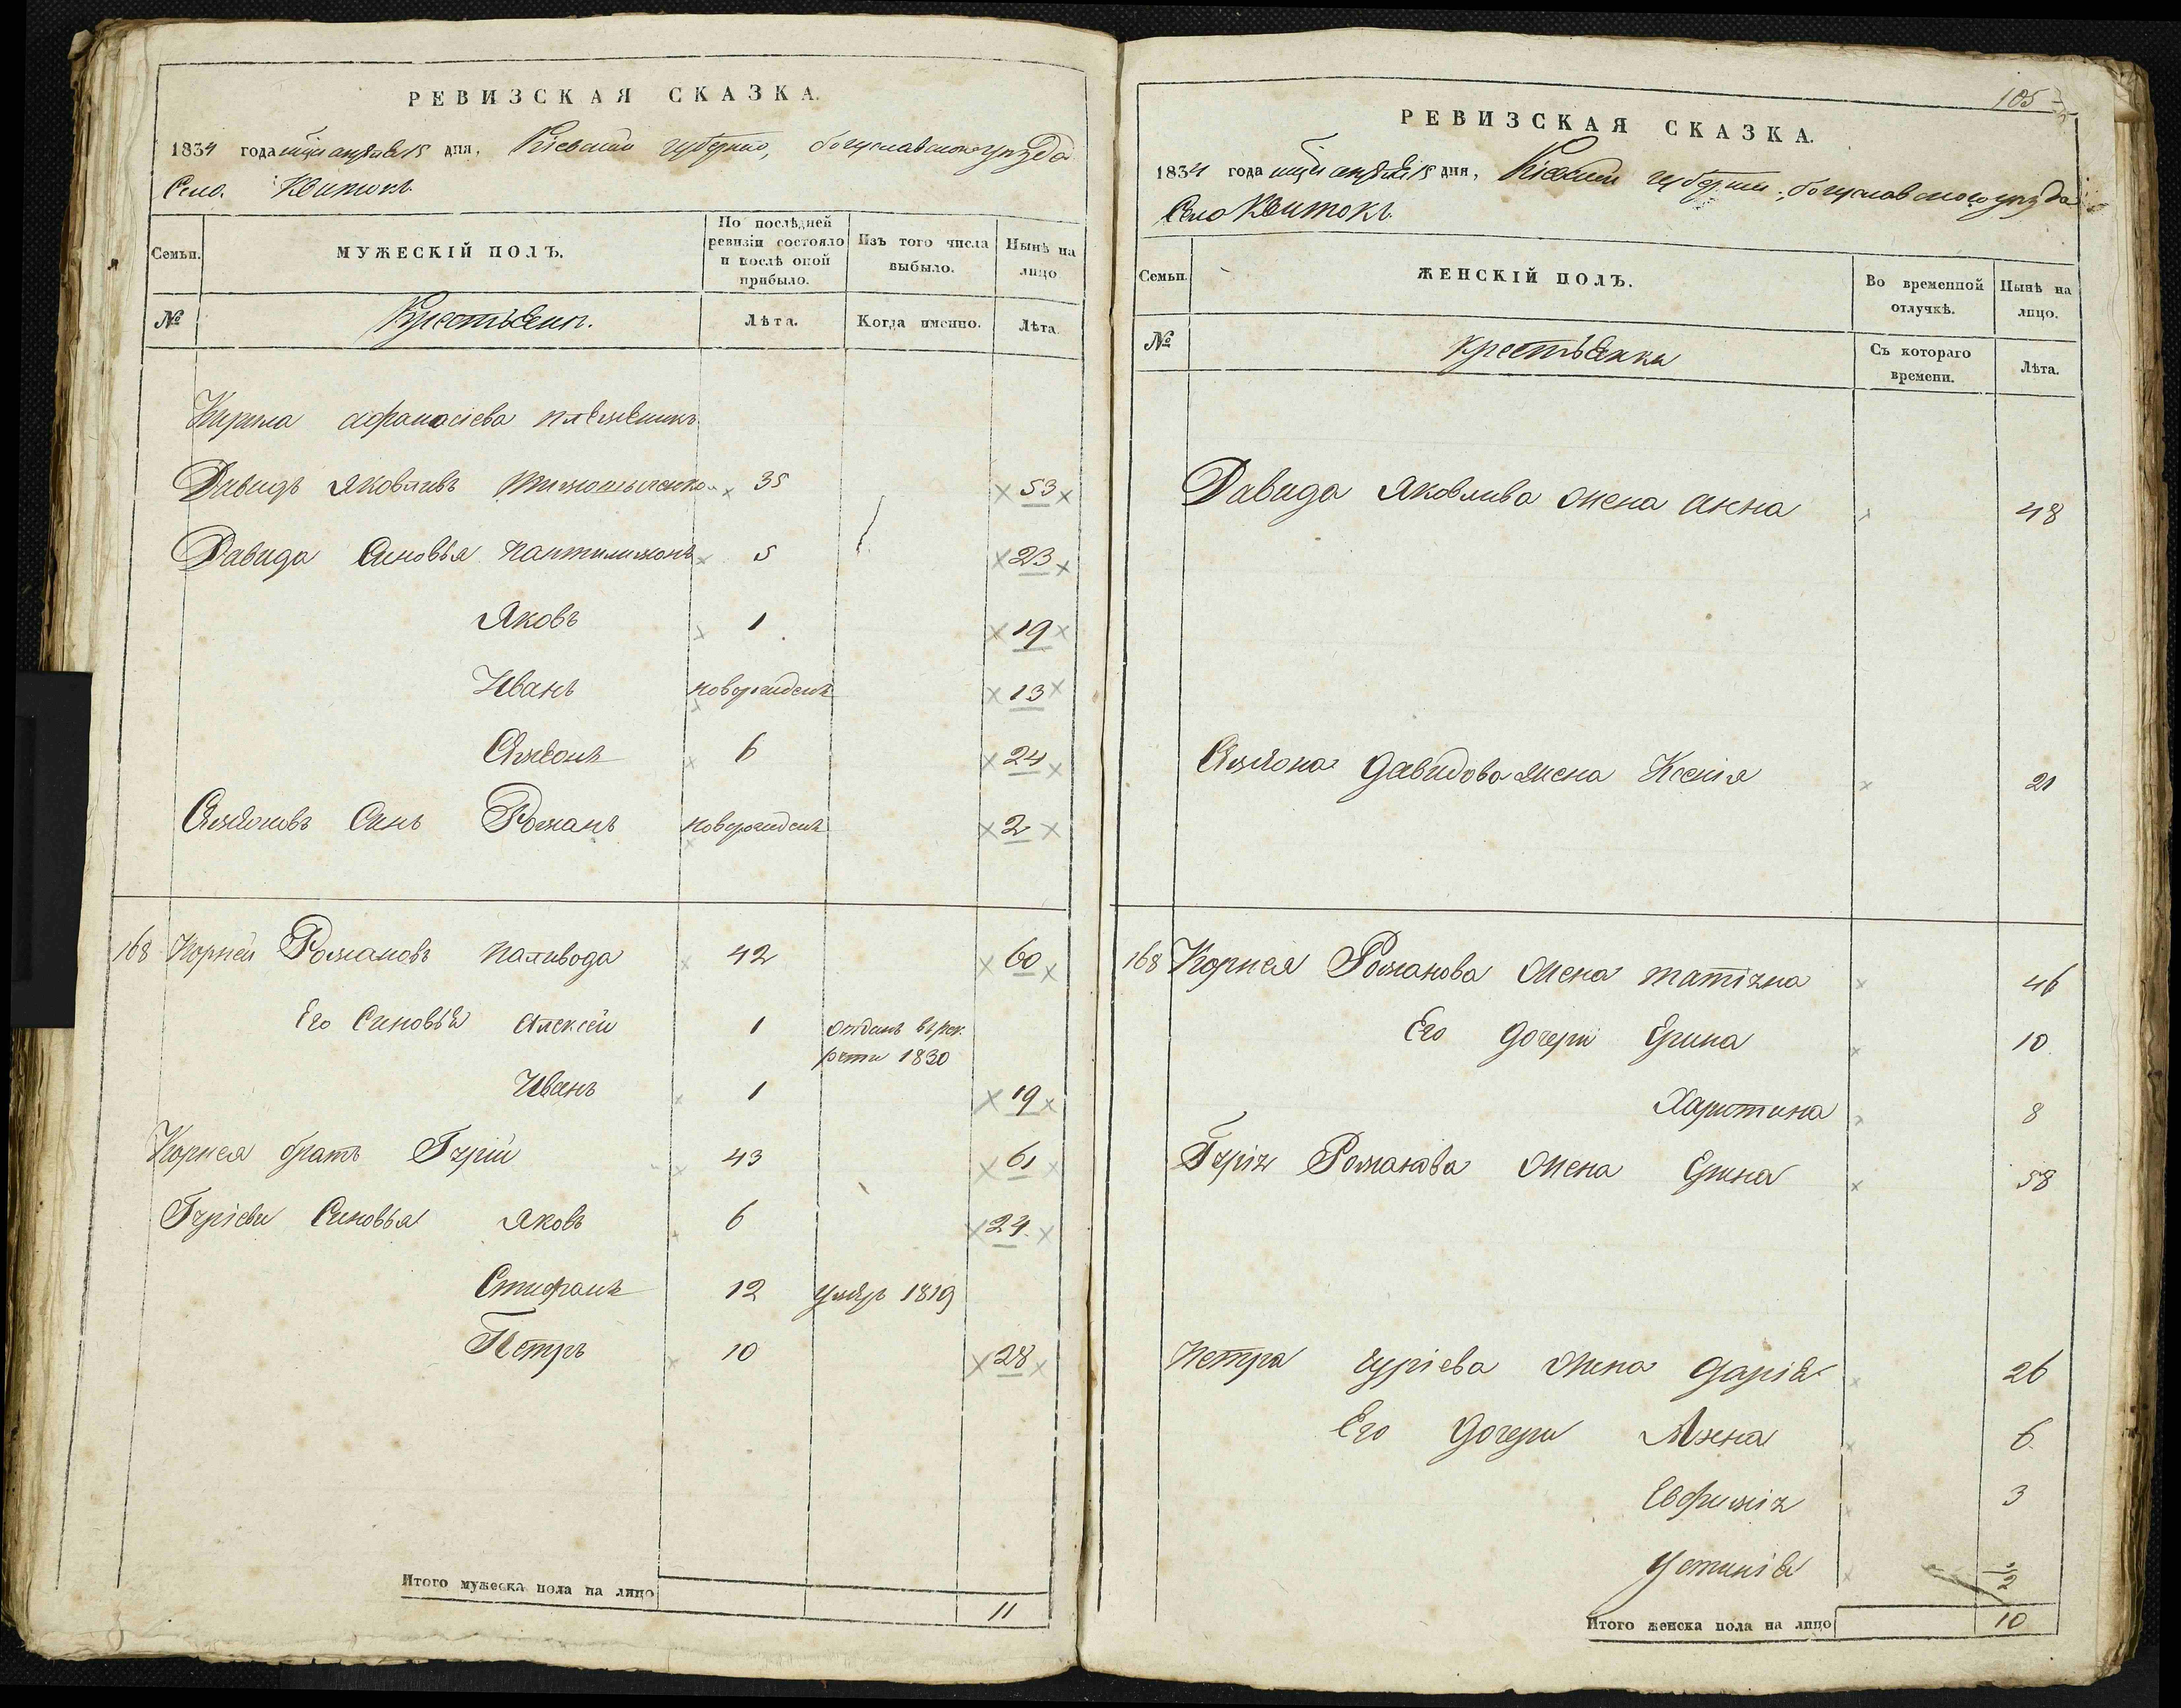 РЕВИЗСКАЯ СКАЗКА.
1834 года апреля 15 дня, Кіевской губерніи, богуславского уезда
Село Квитокъ
Семьи.
МУЖЕСКІЙ ПОЛЪ.
По послѣдней ревизіи состояло и послѣ оной прибыло.
Изъ того числа выбыло.
Нынѣ на лицо
№
Крестьяни.
Лѣта.
Когда именно.
Лѣта.
афанасіева племеникъ
Давидъ Яковливъ Тимошыченко 35 53
Давида Синовья Пантилимонъ 5 23
Яковъ 1 19
Иванъ новорожденъ 13
Сямеонъ 6 24
Сямионивъ Синъ Романъ новорожденъ 2
168 Корней Романовъ Паливода 42 60
Его Синовья Алексей 1 отданъ въ рек
рути 1830
Иванъ 1 19
Корнея братъ Гурій 43 61
Гуріеви Синовья Яковъ 6 24
Стифанъ 12 умеръ 1819
Петръ 10 28
Итого мужеска пола на лицо
11
105
РЕВИЗСКАЯ СКАЗКА.
1834 года апреля 15 дня, Кіевской губерніи, богуславского уезда
Село Квитокъ
Семьи.
ЖЕНСКІЙ ПОЛЪ.
Во временной отлучкѣ.
Нынѣ на лицо.
№
крестьянки
Съ котораго времени.
Лѣта.
Давида Яковлива жена анна 48
Сямиона давидова жена Ксенія 21
168 Корнея Романова жена татіяна 46
Его дочери Ерина 10
Харитина 8
Гурія Романова жена Ерина 58
Петра гуріева жена дарія 26
Его дочери Анна 6
Евфимія 3
Устинія
Итого женска пола на лицо
10